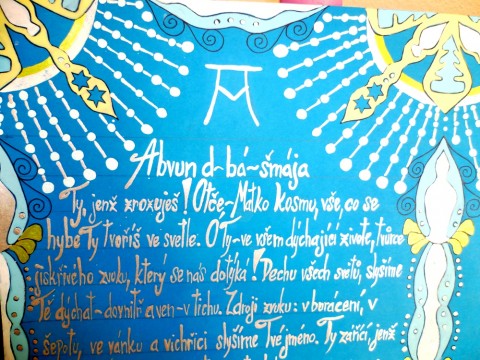 Abvun d~bá~šmája
Ty, jenž zrozuješ! Otče~Matko kosmu, vše, co se
hýbe Ty tvoříš ve světle. Ó Ty~ve všem dýchající živote, tvůrce
jiskřivého zvuku, který se nás dotýká! Dechu všech světů, slyšíme
Tě dýchat~dovnitř a ven~v tichu. Zdroji zvuku: v burácení, v
šepotu, ve vánku a vichřici slyšíme Tvé jméno. Ty zářící, jenž